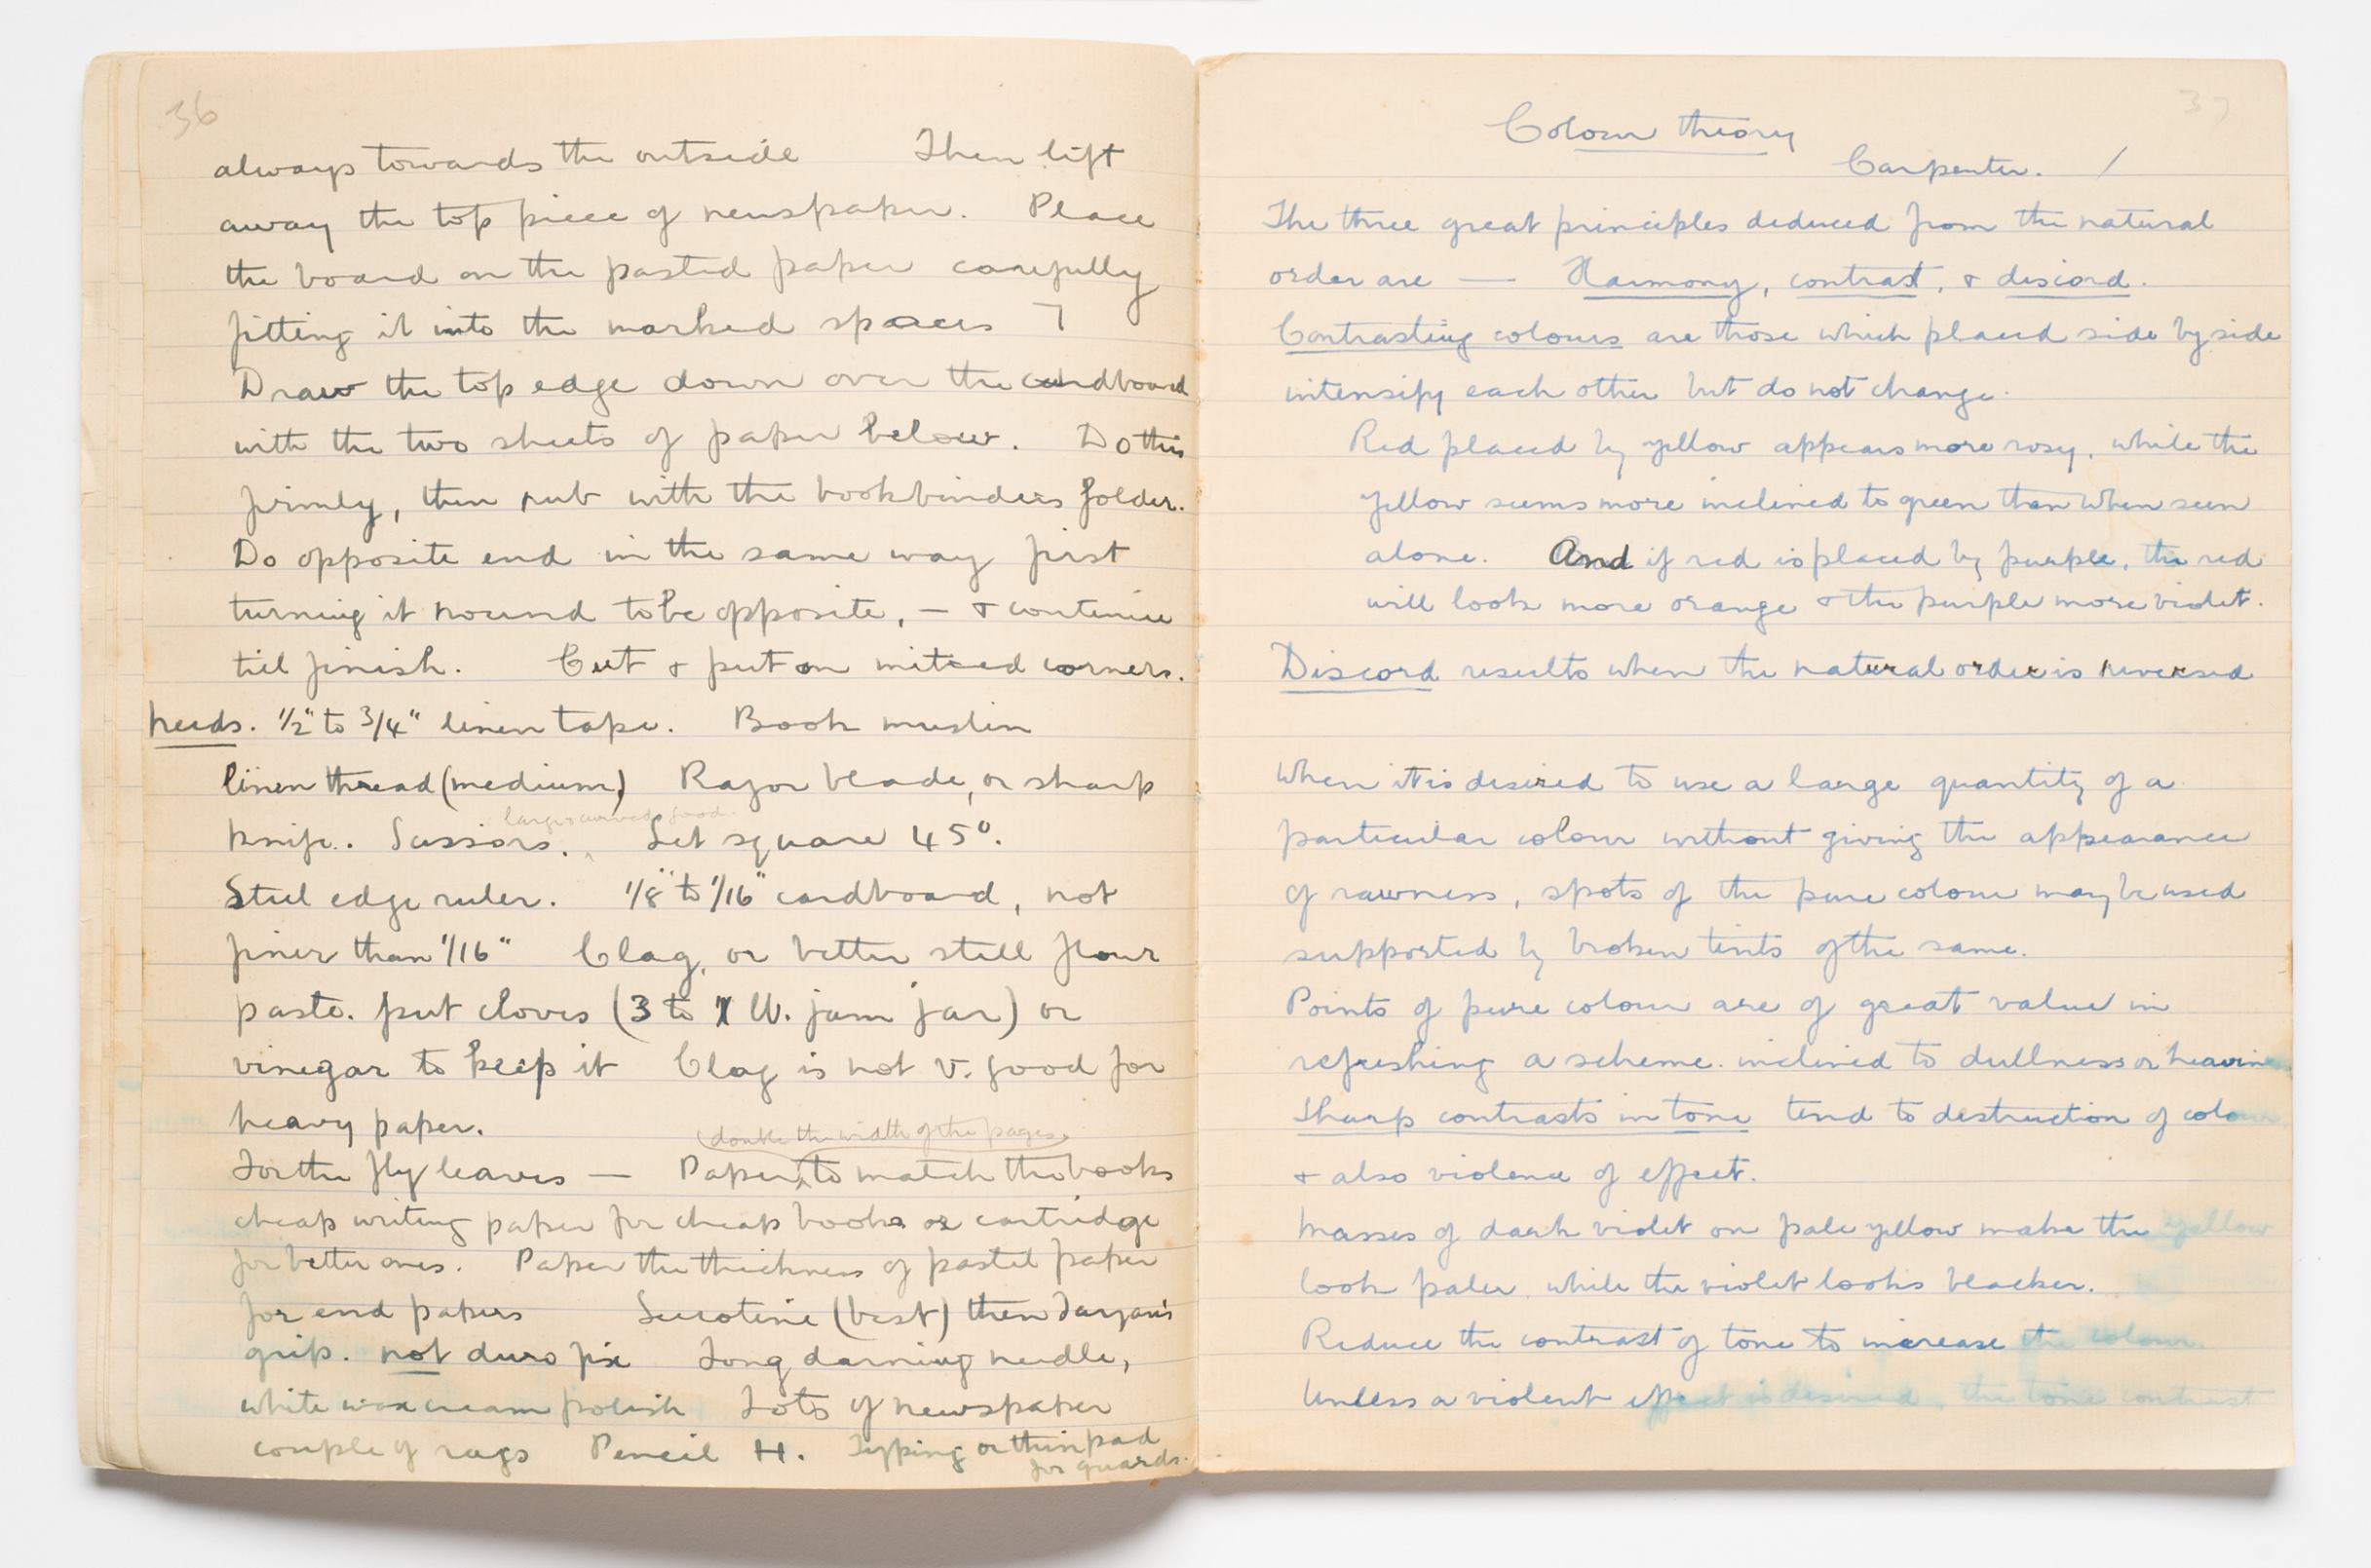 36
always towards the outside Then lift
away the top piece of newspaper. Place
the board on the pasted paper carefully
fitting it into the marked spaces
Draw the top edge down over the cardboard
with the two sheets of paper below. Do this
firmly, then rub with the bookbinders folder.
Do opposite end in the same way first
turning it round to be opposite, — & continue
til finish. Cut & put on mitred corners.
needs. 1/2" to 3/4" linen tape. Book muslin
linen thread (medium) Razor blade, or sharp
large curved good.
knife. Scissors. Set square 45°.
Steel edge ruler. 1/8" to 1/16" cardboard, not
finer than 1/16" Clag, or better still flour
paste. put cloves (3 to 1 lb. jam jar) or
vinegar to keep it Clag is not v. good for
heavy paper.
(double the width of the pages)
For the fly leaves — Paper, to match the books
cheap writing paper for cheap books or cartridge
for better ones. Paper the thickness of pastel paper
for end papers Secotine (best) then Tarzan's
grip. not duro fix Long darning needle,
white wax cream polish Lots of newspaper
couple of rags Pencil H. Typing or thin pad
for guards.
37
Colour theory
Carpenter. /
The three great principles deduced from the natural
order are — Harmony, contrast, & discord.
Contrasting colours are those which placed side by side
intensify each other but do not change.
Red placed by yellow appears more rosy, while the
yellow seems more inclined to green than when seen
alone. And if red is placed by purple, the red
will look more orange & the purple more violet.
Discord results when the natural order is reversed
When it is desired to use a large quantity of a
particular colour without giving the appearance
of rawness, spots of the pure colour may be used
supported by broken tints of the same.
Points of pure colour are of great value in
refreshing a scheme inclined to dullness or heaviness
Sharp contrasts in tone tend to destruction of colour
& also violence of effect.
Masses of dark violet on pale yellow make the yellow
look paler, while the violet looks blacker.
Reduce the contrast of tone to increase the colour.
Unless a violent effect is desired, the tone contrast